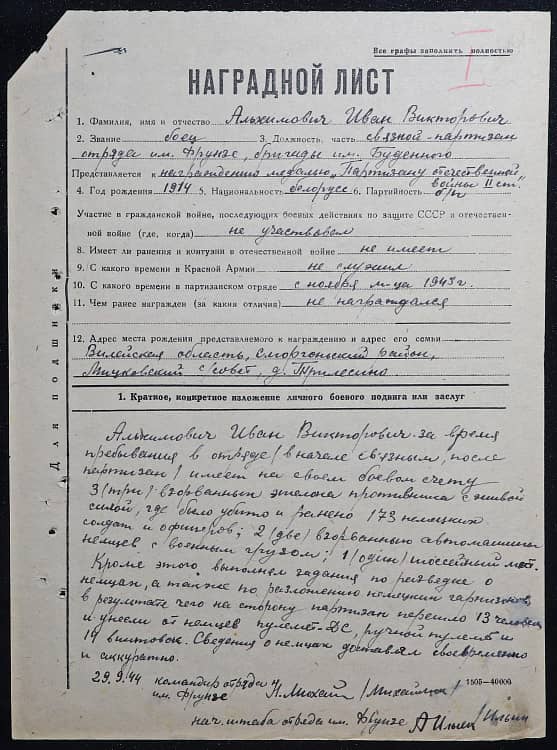 Все графы заполнить полностью
I
НАГРАДНОЙ ЛИСТ
1. Фамилия, имя и отчество Альхимович Иван Викторович
2. Звание боец 3. Должность, часть связной-партизан
отряда им. Фрунзе, бригады им. Буденного
Представляется к награждению медалью „Партизану отечественной
войны II ст.
4. Год рождения 1914 5. Национальность белорусс 6. Партийность б/п
Участие в гражданской войне, последующих боевых действиях по защите СССР и отечествен-
ной войне (где, когда) не участвовал
8. Имеет ли ранения и контузии в отечественной войне не имеет
9. С какого времени в Красной Армии не служил
10. С какого времени в партизанском отряде с ноября м-ца 1943 г.
11. Чем ранее награжден (за какия отличия) не награждался
12. Адрес места рождения представляемого к награждению и адрес его семьи
Вилейская область, Сморгоньский район,
Мицковский с/совет, д. Трилесино
Для подшивки
1. Краткое, конкретное изложение личного боевого подвига или заслуг
Альхимович Иван Викторович за время
пребывания в отряде (в начале связным, после
партизан) имеет на своем боевом счету
3 (три) взорванных эшелона противника с живой
силой, где было убито и ранено 173 немецких
солдат и офицеров; 2 (две) взорванных автомашины
немцев с военным грузом; 1 (один) шоссейный мост.
Кроме этого выполнял задания по разведке о
немцах, а также по разложению немецких гарнизонов
в результате чего на сторону партизан перешло 13 человек
и унесли от немцев пулемет-ДС, ручной пулемет и
14 винтовок. Сведения о немцах доставлял своевременно
и аккуратно.
29.9.44 командир отряда
им. Фрунзе /Михайлюк/
1505—40000
нач. штаба отряда им. Фрунзе А Ильин /Ильин